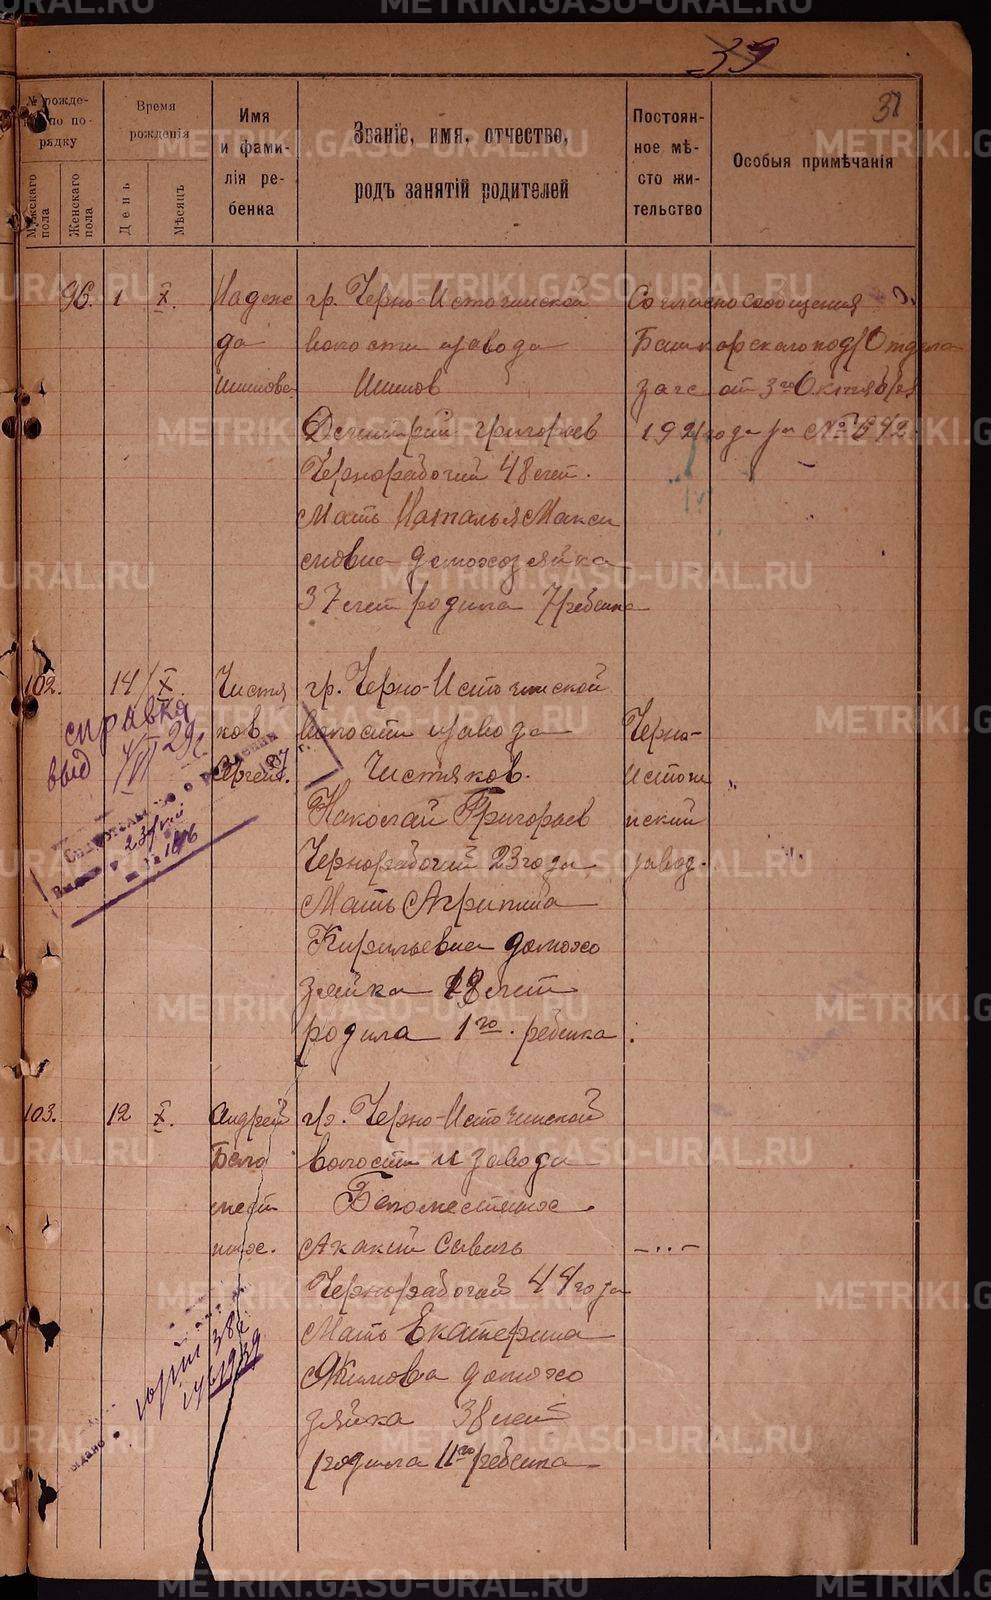 39
37
№ рожде-
нія по по-
рядку
Мужскаго
пола
Женскаго
пола
Время
рожденія
День
Мѣсяцъ
Имя
и фами-
лія ре-
бенка
Званіе, имя, отчество,
родъ занятій родителей
Постоян-
ное мѣ-
сто жи-
тельство
Особыя примѣчанія
96. 1 X.
Надеж
да
Шишова
гр. Черно-Источинской
волости завода
Шишов
Дмитрий Григорьев
Чернорабочий 48 лет.
Мать Наталья Макси
мовна домохозяйка
37 лет родила 7 ребенка
Согласно сообщения
Башкарского под/Отдела
загс от 3го Октября
1921 года за №
102. 14 X.
Чистя
ков
Сергей.
гр. Черно-Источинской
волости завода
Чистяков.
Николай Григорьев
Чернорабочий 23 года
Мать Агрипина
Кирильевна домохо
зяйка 18 лет
родила 1го. ребенка.
Черно-
Источи
нский
завод.
справка
выд 4/VII 29г
Свидетельство о рождении
103. 12 X.
Андрей
Бело
мест
ных.
гр. Черно-Источинской
волости и завода
Беломестных.
Акакий Савич
Чернорабочий 44 года
Мать Екатерина
Якимовна домохо
зяйка 38 лет
родила 11го ребенка
-..-
METRIKI.GASO-URAL.RU